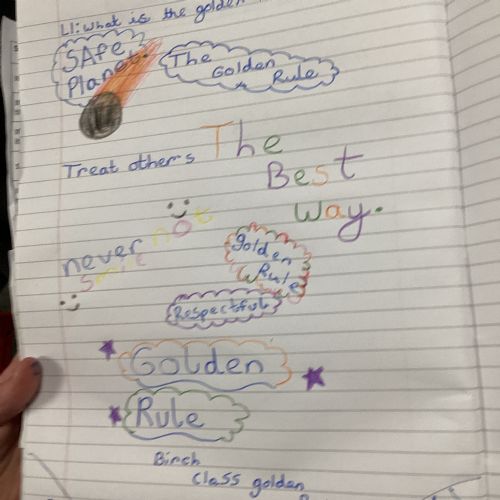 LI: what is the golden
SAfe
Planet.
The
Golden
Rule
Treat others The
Best
Way.
never
not
smile
golden
Rule
Respectful
Golden
Rule
Birch
Class golden